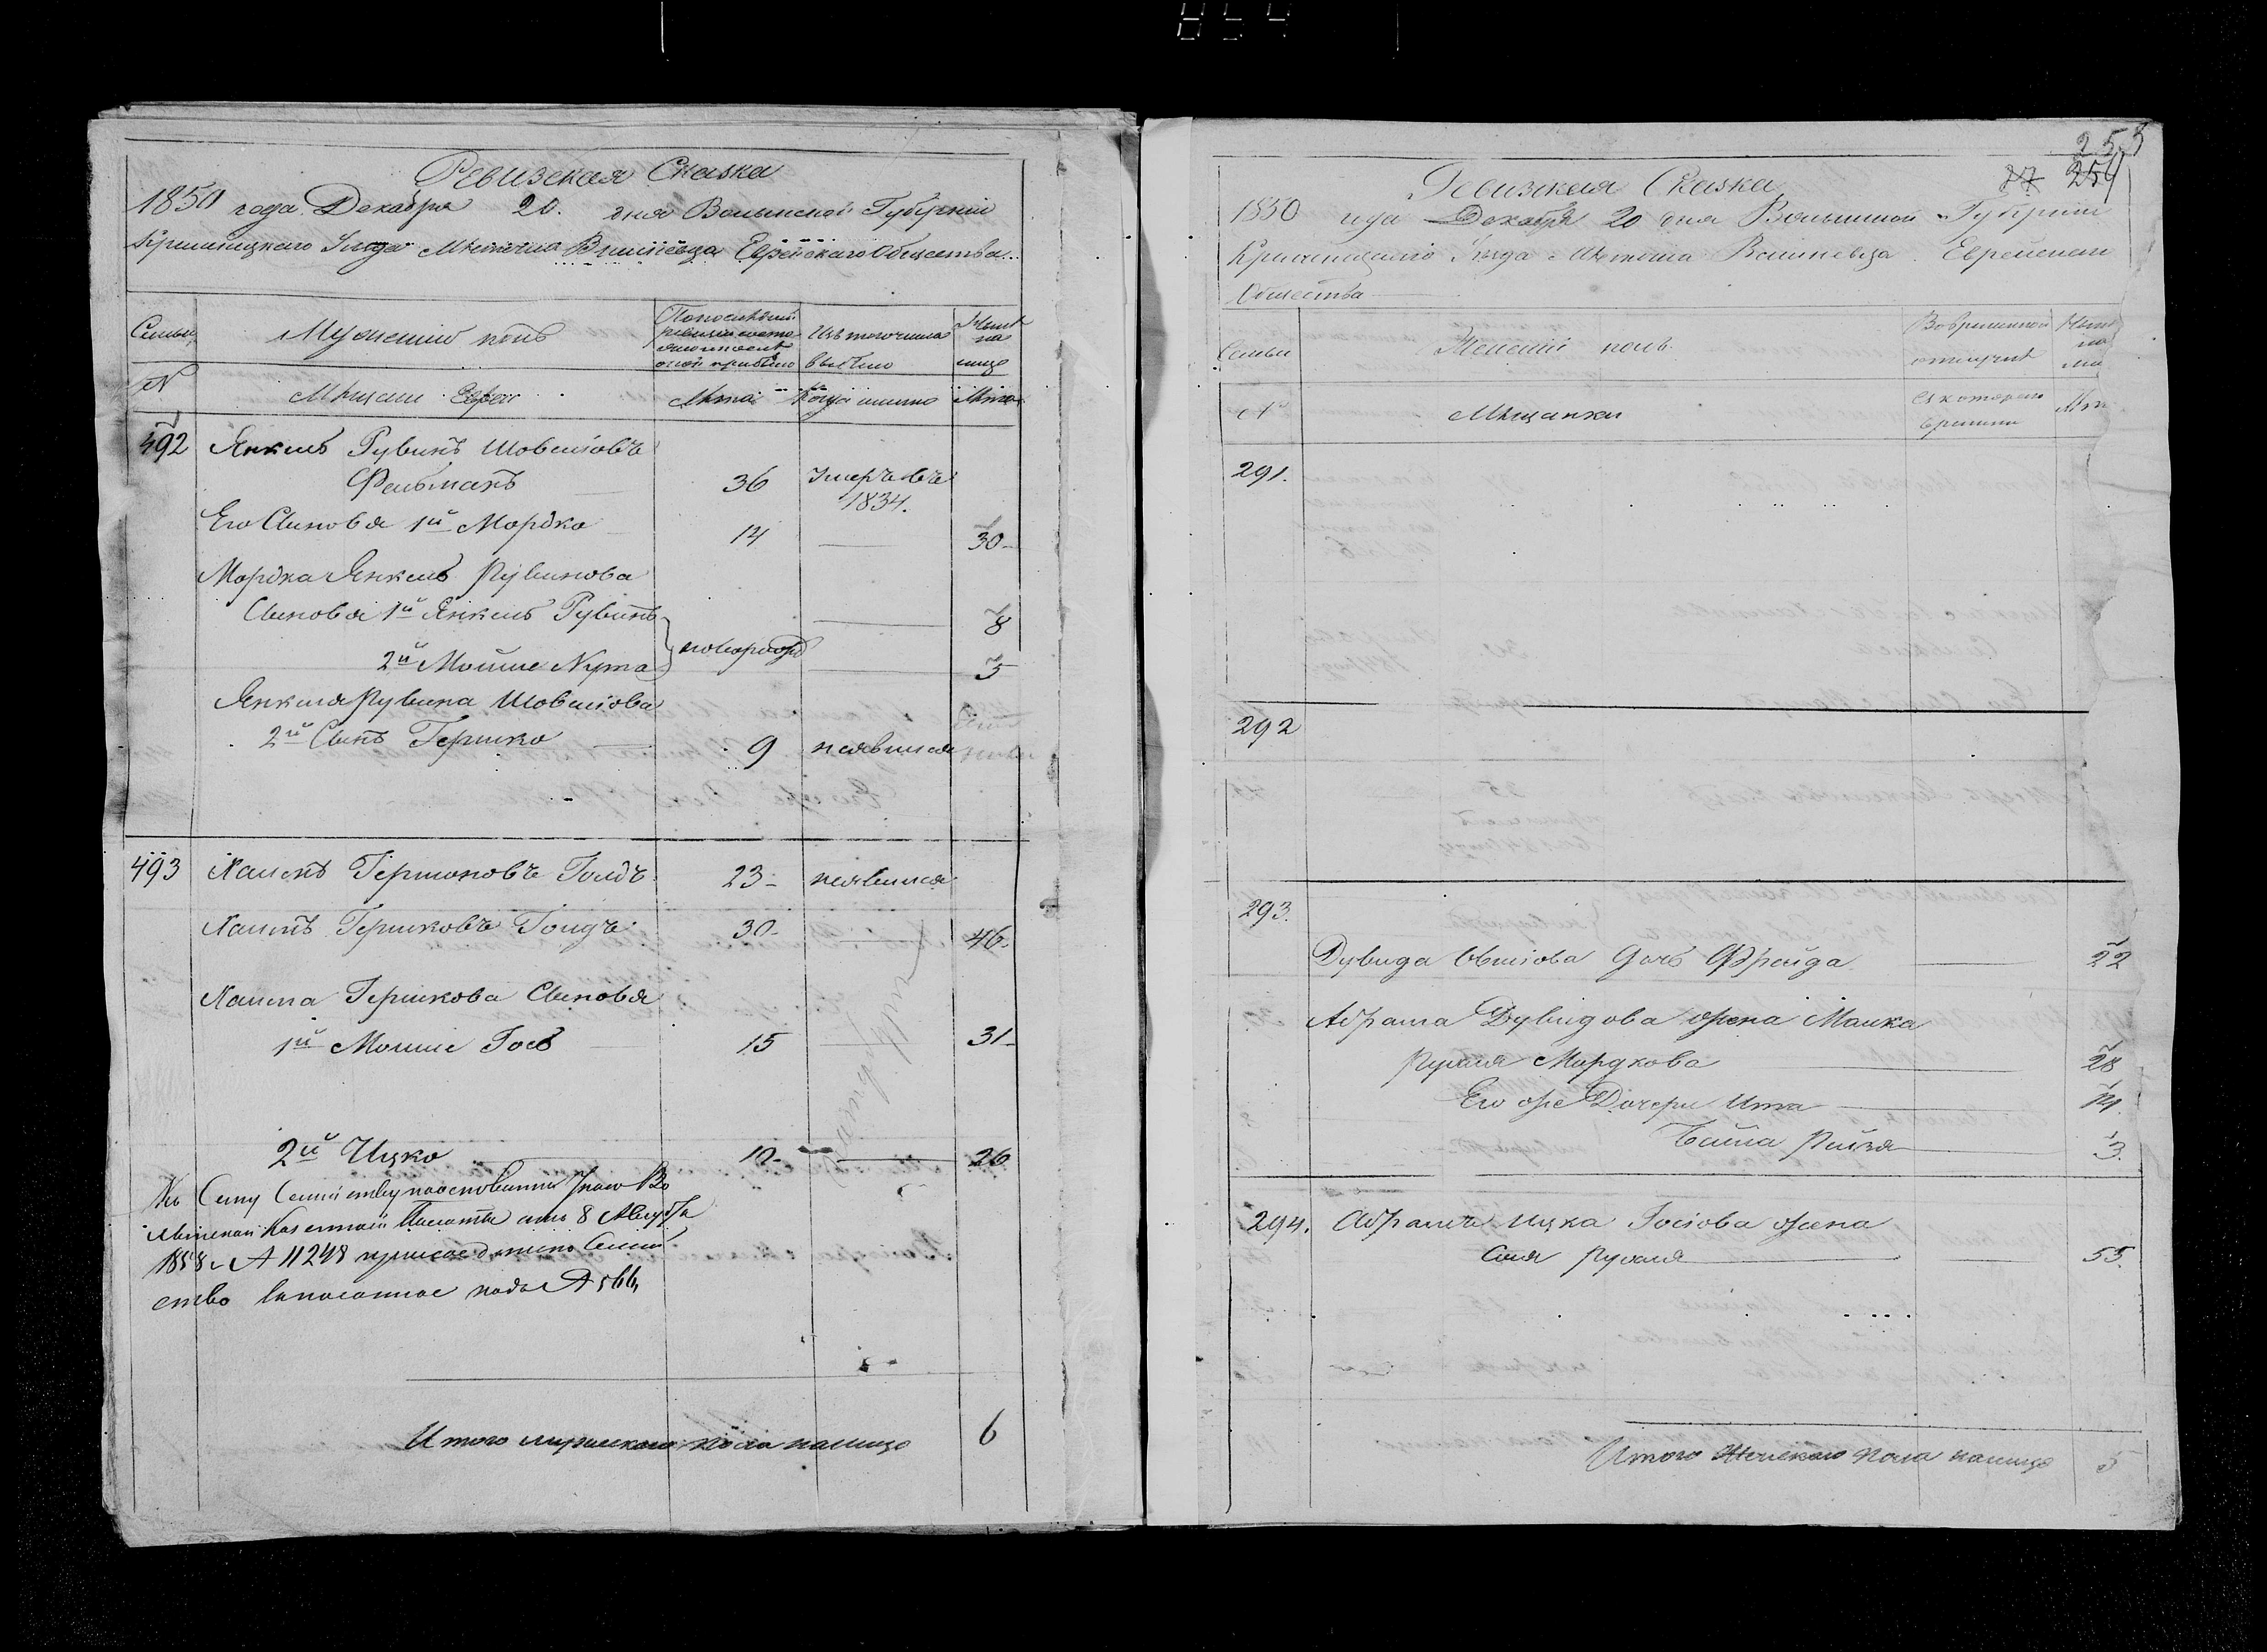 854
Ревизская Сказка
1850 года Декабря 20. дня Волынской Губерніи
Кременецкаго Уезда Местечка Вишневца Еврейскаго Общества
Семьи
Мужескій полъ
По последней ревизіи состояло и после оной прибыло
Изъ того числа выбыло
Ныне на лице
№
Мещане Евреи
Лета
Когда именно
Лета
492 Янкель Рувинъ Шовеліовъ
Фельманъ 36 Умеръ въ 1834.
Его Сыновья 1й Мордко 14 30
Мордка Янкель Рувинова
Сыновья 1й Янкель Рувинъ 8
новорожд
2й Мошке Нута 5
Янкеля Рувина Шовеліова
2й Сынъ Гершко 9 неявился
493 Хаимъ Гершоновъ Голдъ 23 неявился
Хаимъ Гершковъ Голдъ 30 46
Хаима Гершкова Сыновья
1й Мошке Гось 15 31
2й Ицко 12 26
Къ Сему Семейству на основаніи Указа Во
лынской Казенной Палаты отъ 8 Августа
1858 г № 11248 присоединено Семей
ство записанное подъ № 566
Итого мужескаго пола налицо 6
253
77 254
Ревизская Сказка
1850 года Декабря 20 дня Волынской Губерніи
Кременецкаго Уезда Местечка Вишневца Еврейскаго
Общества
Семьи
Женскій полъ
Во временной отлучке
Ныне на ли
№
Мещанки
Съ котораго времени
Лета
291.
292
293.
Дувида Овшіова Дочь Фрейда 22
Абрама Дувидова жена Малка
Рухля Мордкова 28
Его же Дочери Ита 14
Бейла Рейзя 3
294. Абрамъ Ицка Госіова жена
Сия Рухля 55
Итого Женскаго пола налицо 5